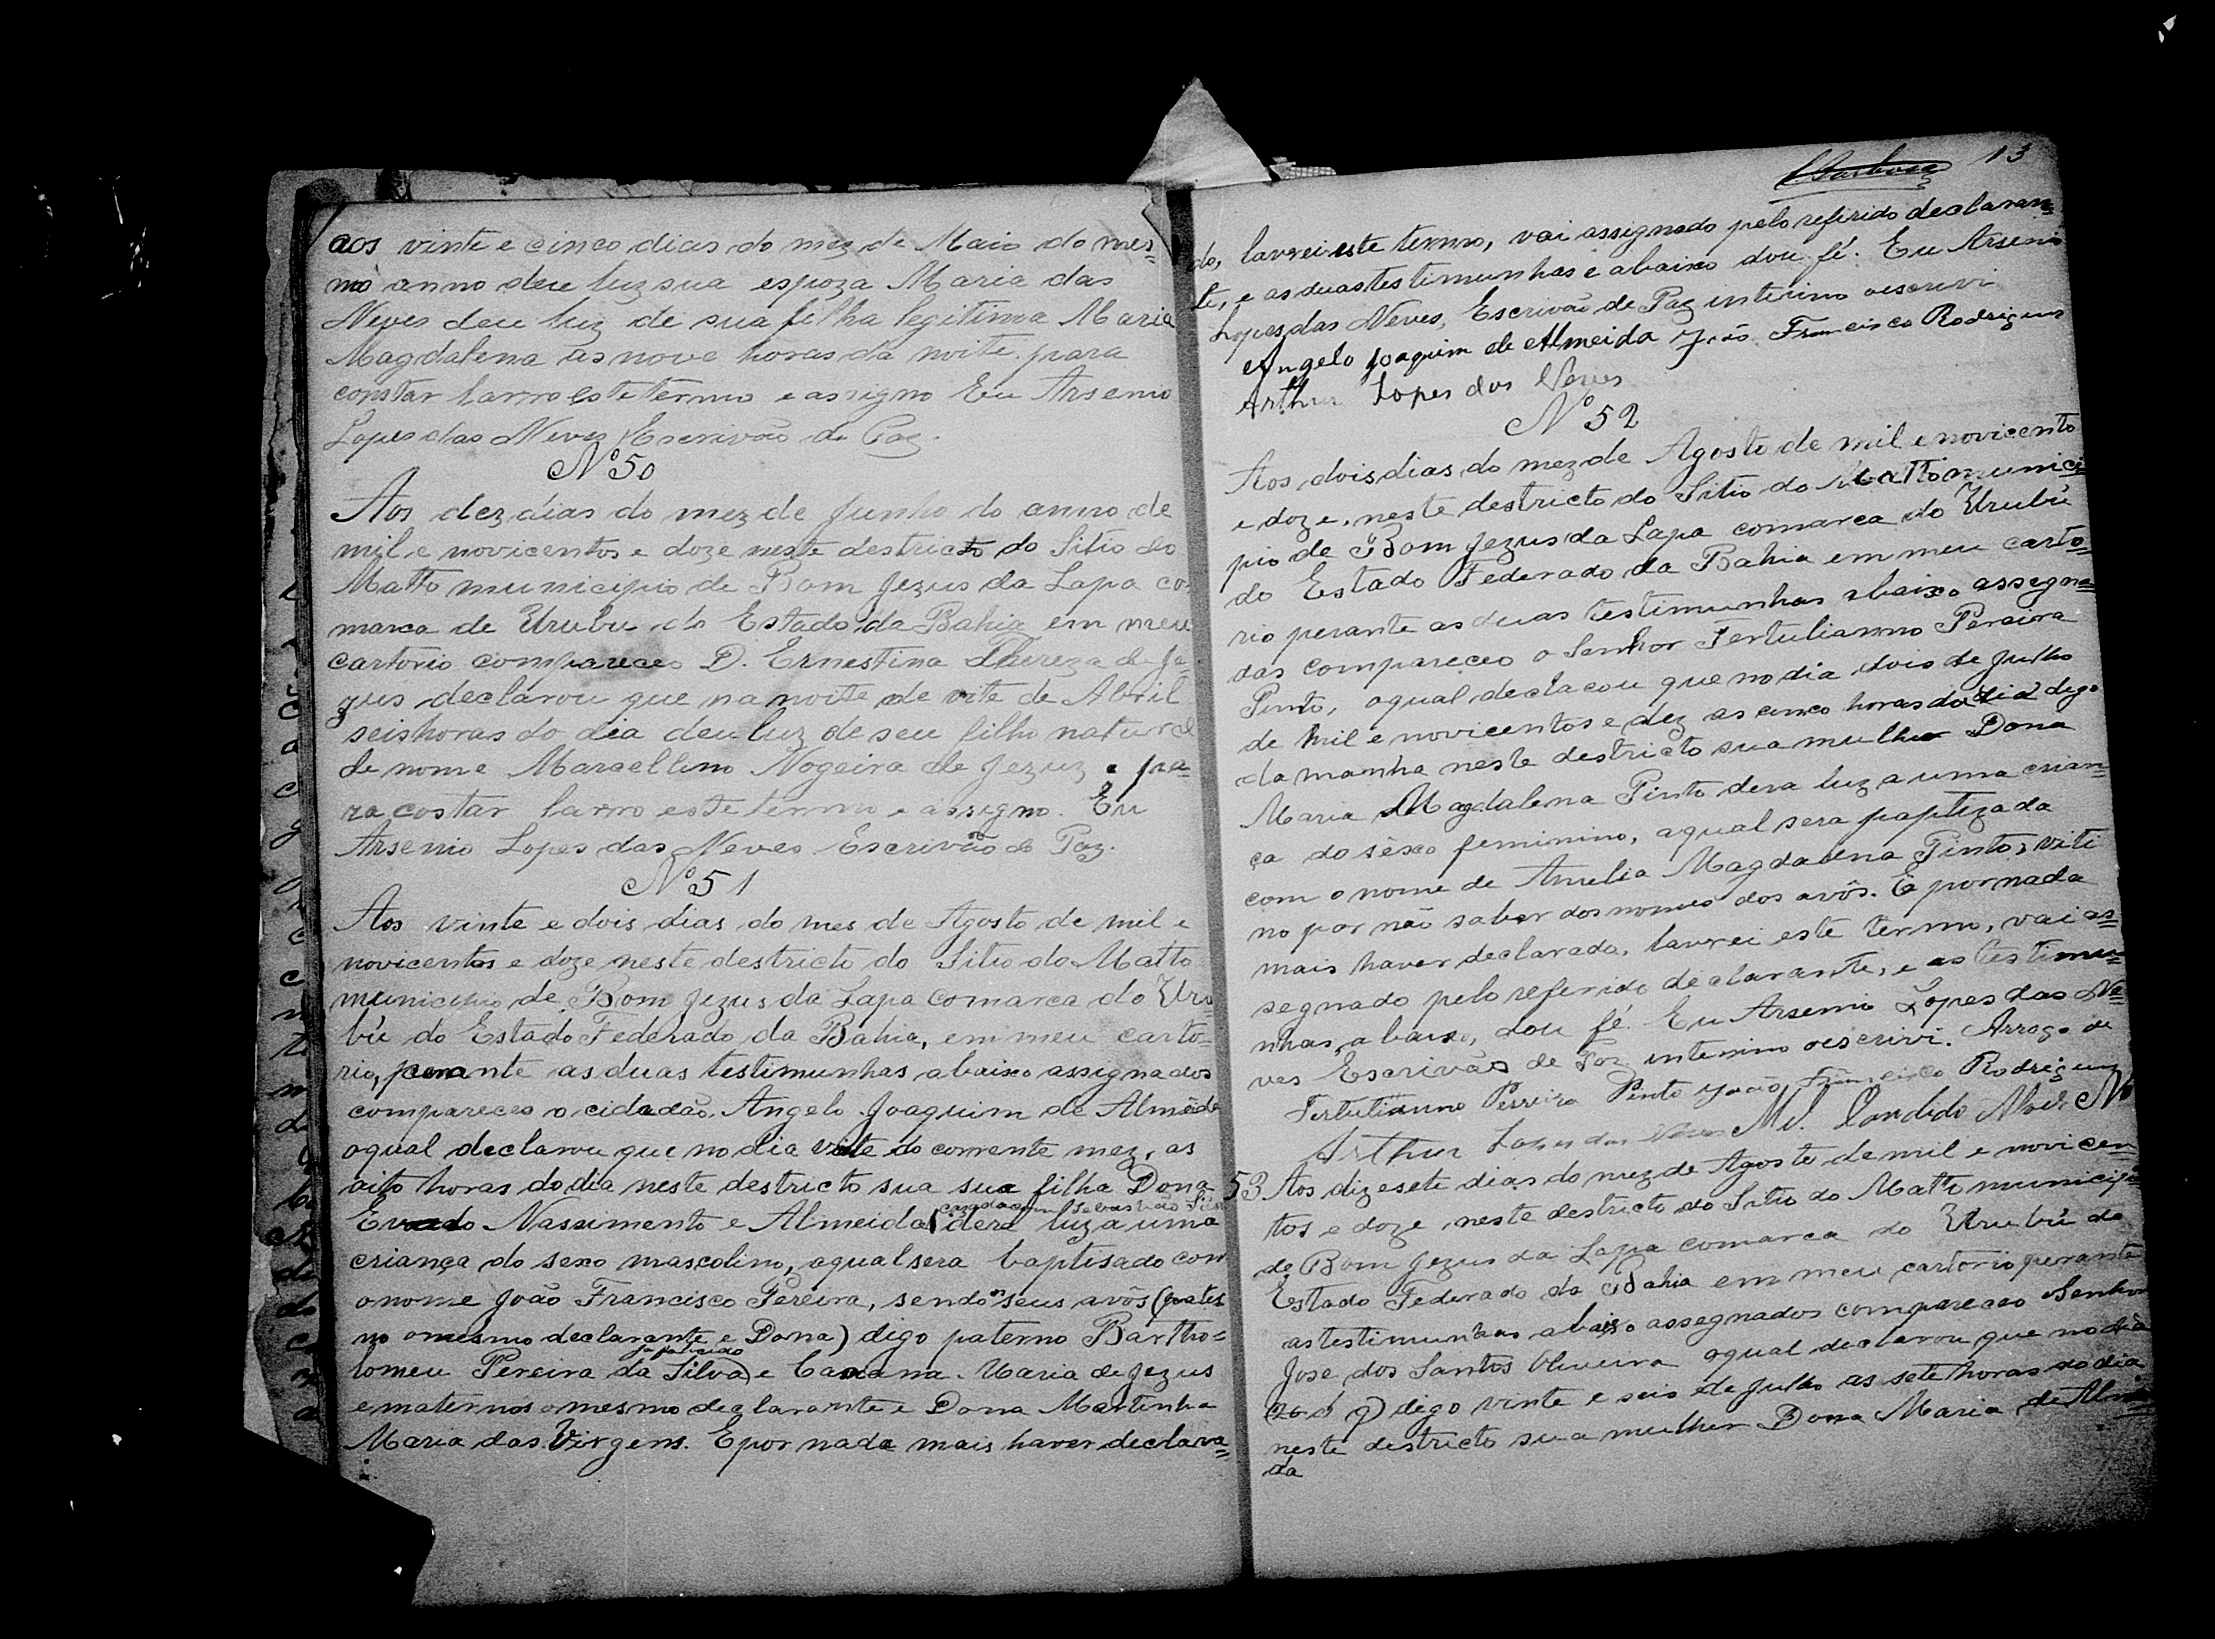 aos vinte e cinco dias do mez de Maio do mes=
mo anno deu luz sua espoza Maria das
Neves deu luz de sua filha legitima Maria
Magdalena as nove horas da noite. para
constar larro este termo e assigno Eu Arsenio
Lopes das Neves Escrivão de Paz.
Nº 50
Aos dez dias do mez de Junho do anno de
mil e novicentos e doze neste destricto do Sitio do
Matto municipio de Bom Jezus da Lapa co=
marca de Urubu do Estado da Bahia em meu
cartorio compareceo D. Ernestina Thereza de Je
zus declarou que na noite de vite de Abril
seis horas do dia deu luz de seu filho natural
de nome Marcellino Nogeira de Jezuz e pa=
ra costar larro este termo e assigno. Eu
Arsenio Lopes das Neves Escrivão de Paz.
Nº 51
Aos vinte e dois dias do mes de Agosto de mil e
novicentos e doze neste destricto do Sitio do Matto
municipio de Bom Jezus da Lapa comarca do Uru=
bú do Estado Federado da Bahia, em meu carto=
rio, perante as duas testimunhas abaixo assignados
compareceo o cidadão Angelo Joaquim de Almeida
oqual declarou que no dia vite do corrente mez, as
oito horas do dia neste destricto sua sua filha Dona
casada com Sebastião
Nassimento e Almeida dera luz a uma
criança do sexo mascolino, aqual sera baptisado com
o nome João Francisco Pereira, sendo seus avôs (mates
no o mesmo declarante e Dona) digo paterno Bartho=
ja falicido
lomeu Pereira da Silva e Maria de Jezus
e maternos o mesmo declarante e Dona Martinha
Maria das Virgens. E por nada mais haver declara=
13
do, lavrei este termo, vai assignado pelo referido declaran=
te, e as duas testimunhas e abaixo dou fé. Eu Arsenio
Lopes das Neves, Escrivão de Paz interino oescrivi
Angelo Joaquim de Almeida João Francisco Rodrigues
Arthur Lopes das Neves
Nº 52
Aos dois dias do mez de Agosto de mil e novicento
e doze, neste destricto do Sitio do Matto munici=
pio de Bom Jezus da Lapa comarca do Urubú
do Estado Federado da Bahia em meu carto=
rio perante as duas testimunhas abaixo assegna=
das compareceo o Senhor Tertulianno Pereira
Pinto, oqual declarou que no dia dois de Julho
de mil e novicentos e dez as cinco horas do dia digo
da manha neste destricto sua mulher Dona
Maria Magdalena Pinto dera luz a uma crian=
ça do sexo feminino, aqual sera paptizada
com o nome de Amelia Magdalena Pinto, viti
no por não saber dos nomes dos avôs. E por nada
mais haver declarado, lavrei este termo, vai as=
segnado pelo referido declarante, e as testimu=
nhas, abaixo, dou fé. Eu Arsenio Lopes das Ne=
ves Escrivão de Paz interino oescrivi. Arrogo de
Tertulianno Pereira Pinto João Francisco Rodrigues
Arthur Lopes das Neves Ml. Candido Alves
53 Aos dizesete dias do mez de Agosto de mil e novicen=
tos e doze, neste destricto do Sitio do Matto municipio
de Bom Jezus da Lapa comarca do Urubú do
Estado Federado da Bahia em meu cartorio perante
as testimunhas abaixo assegnados compareceo oSenhor
Jose dos Santos Oliveira oqual declarou que no dia
digo vinte e seis de Julho as sete horas do dia
neste destricto sua mulher Dona Maria de Almei=
da